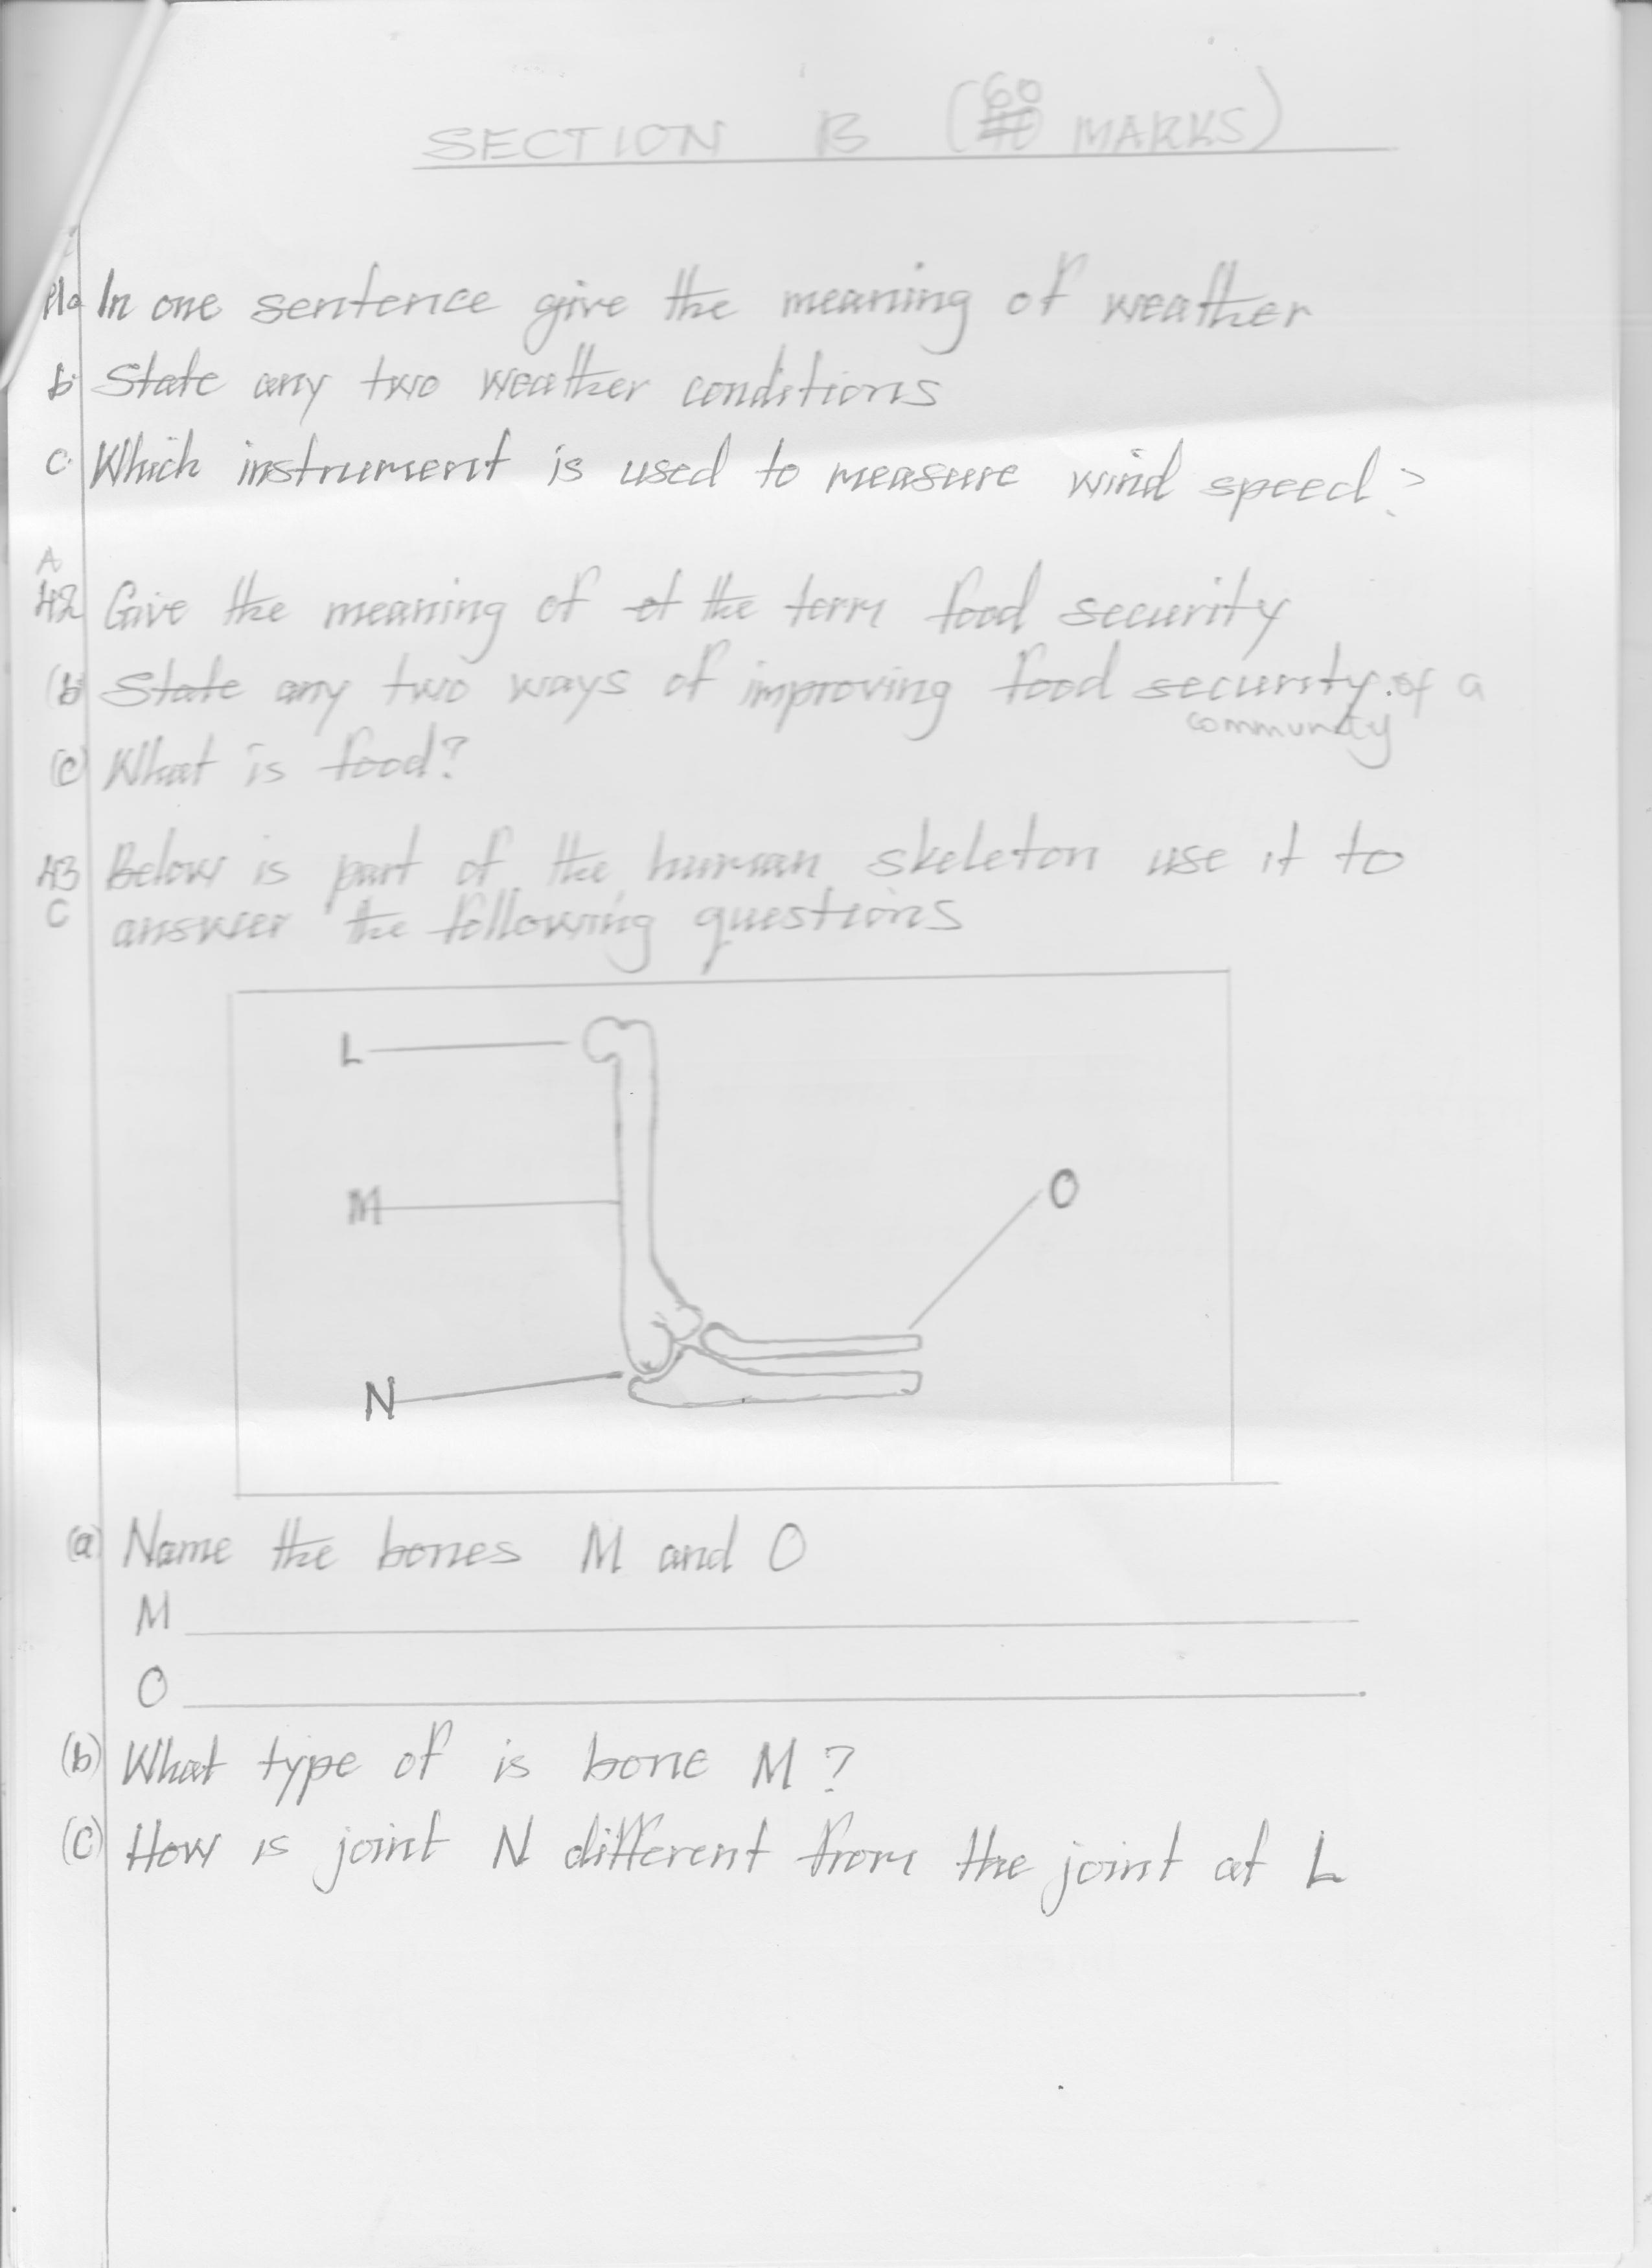 SECTION B (60 MARKS)
41a In one sentence give the meaning of weather
b. State any two weather conditions
c. Which instrument is used to measure wind speed?
A
42 Give the meaning of of the term food security
(b) State any two ways of improving food security. of a
community
(c) What is food?
43 Below is part of the human skeleton use it to
C answer the following questions
L
M
O
N
(a) Name the bones M and O
M
O
(b) What type of is bone M?
(c) How is joint N different from the joint at L